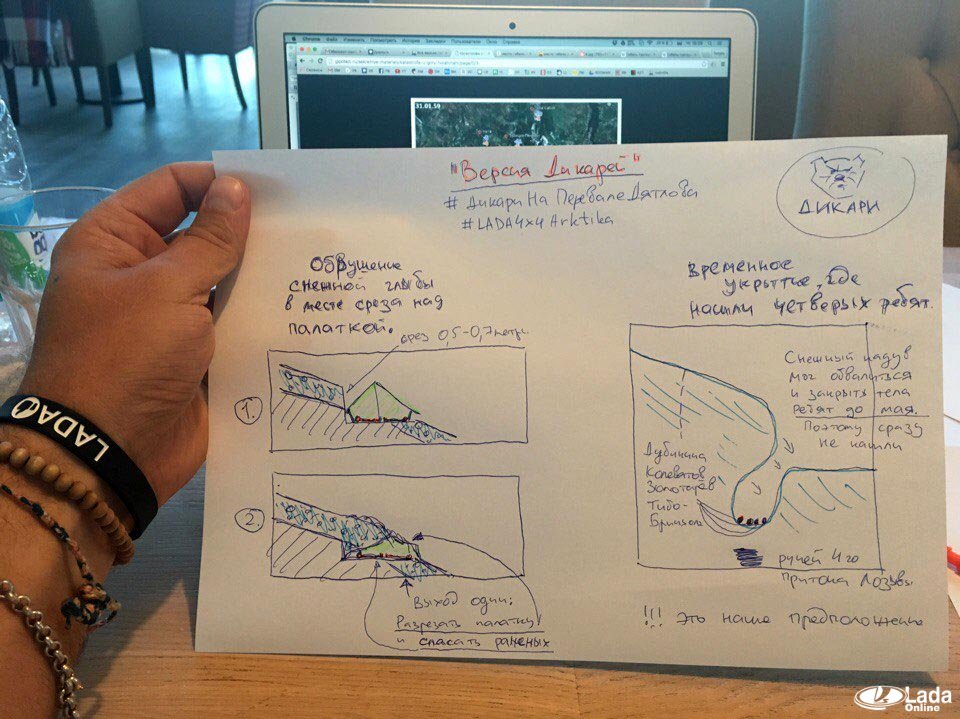 Chrome Файл Изменить Посмотреть История Закладки Пользователи Окно Справка
31.01.59
"Версия Дикарей"
# Дикари На Перевале Дятлова
# LADA4x4 Arktika
ДИКАРИ
Обрушение
снежной глыбы
в месте среза над
палаткой.
срез 0,5-0,7 метр.
1.
2.
Выход один:
Разрезать палатку
и спасать раненых
Временное
укрытие, где
нашли четверых ребят.
Снежный надув
мог обвалиться
и закрыть тела
ребят до мая.
Поэтому сразу
не нашли
Дубинина
Колеватов
Золотарев
Тибо-
Бриньоль
ручей 4го
притока Лозьвы
!!! Это наше предположение
LADA
Lada
Online